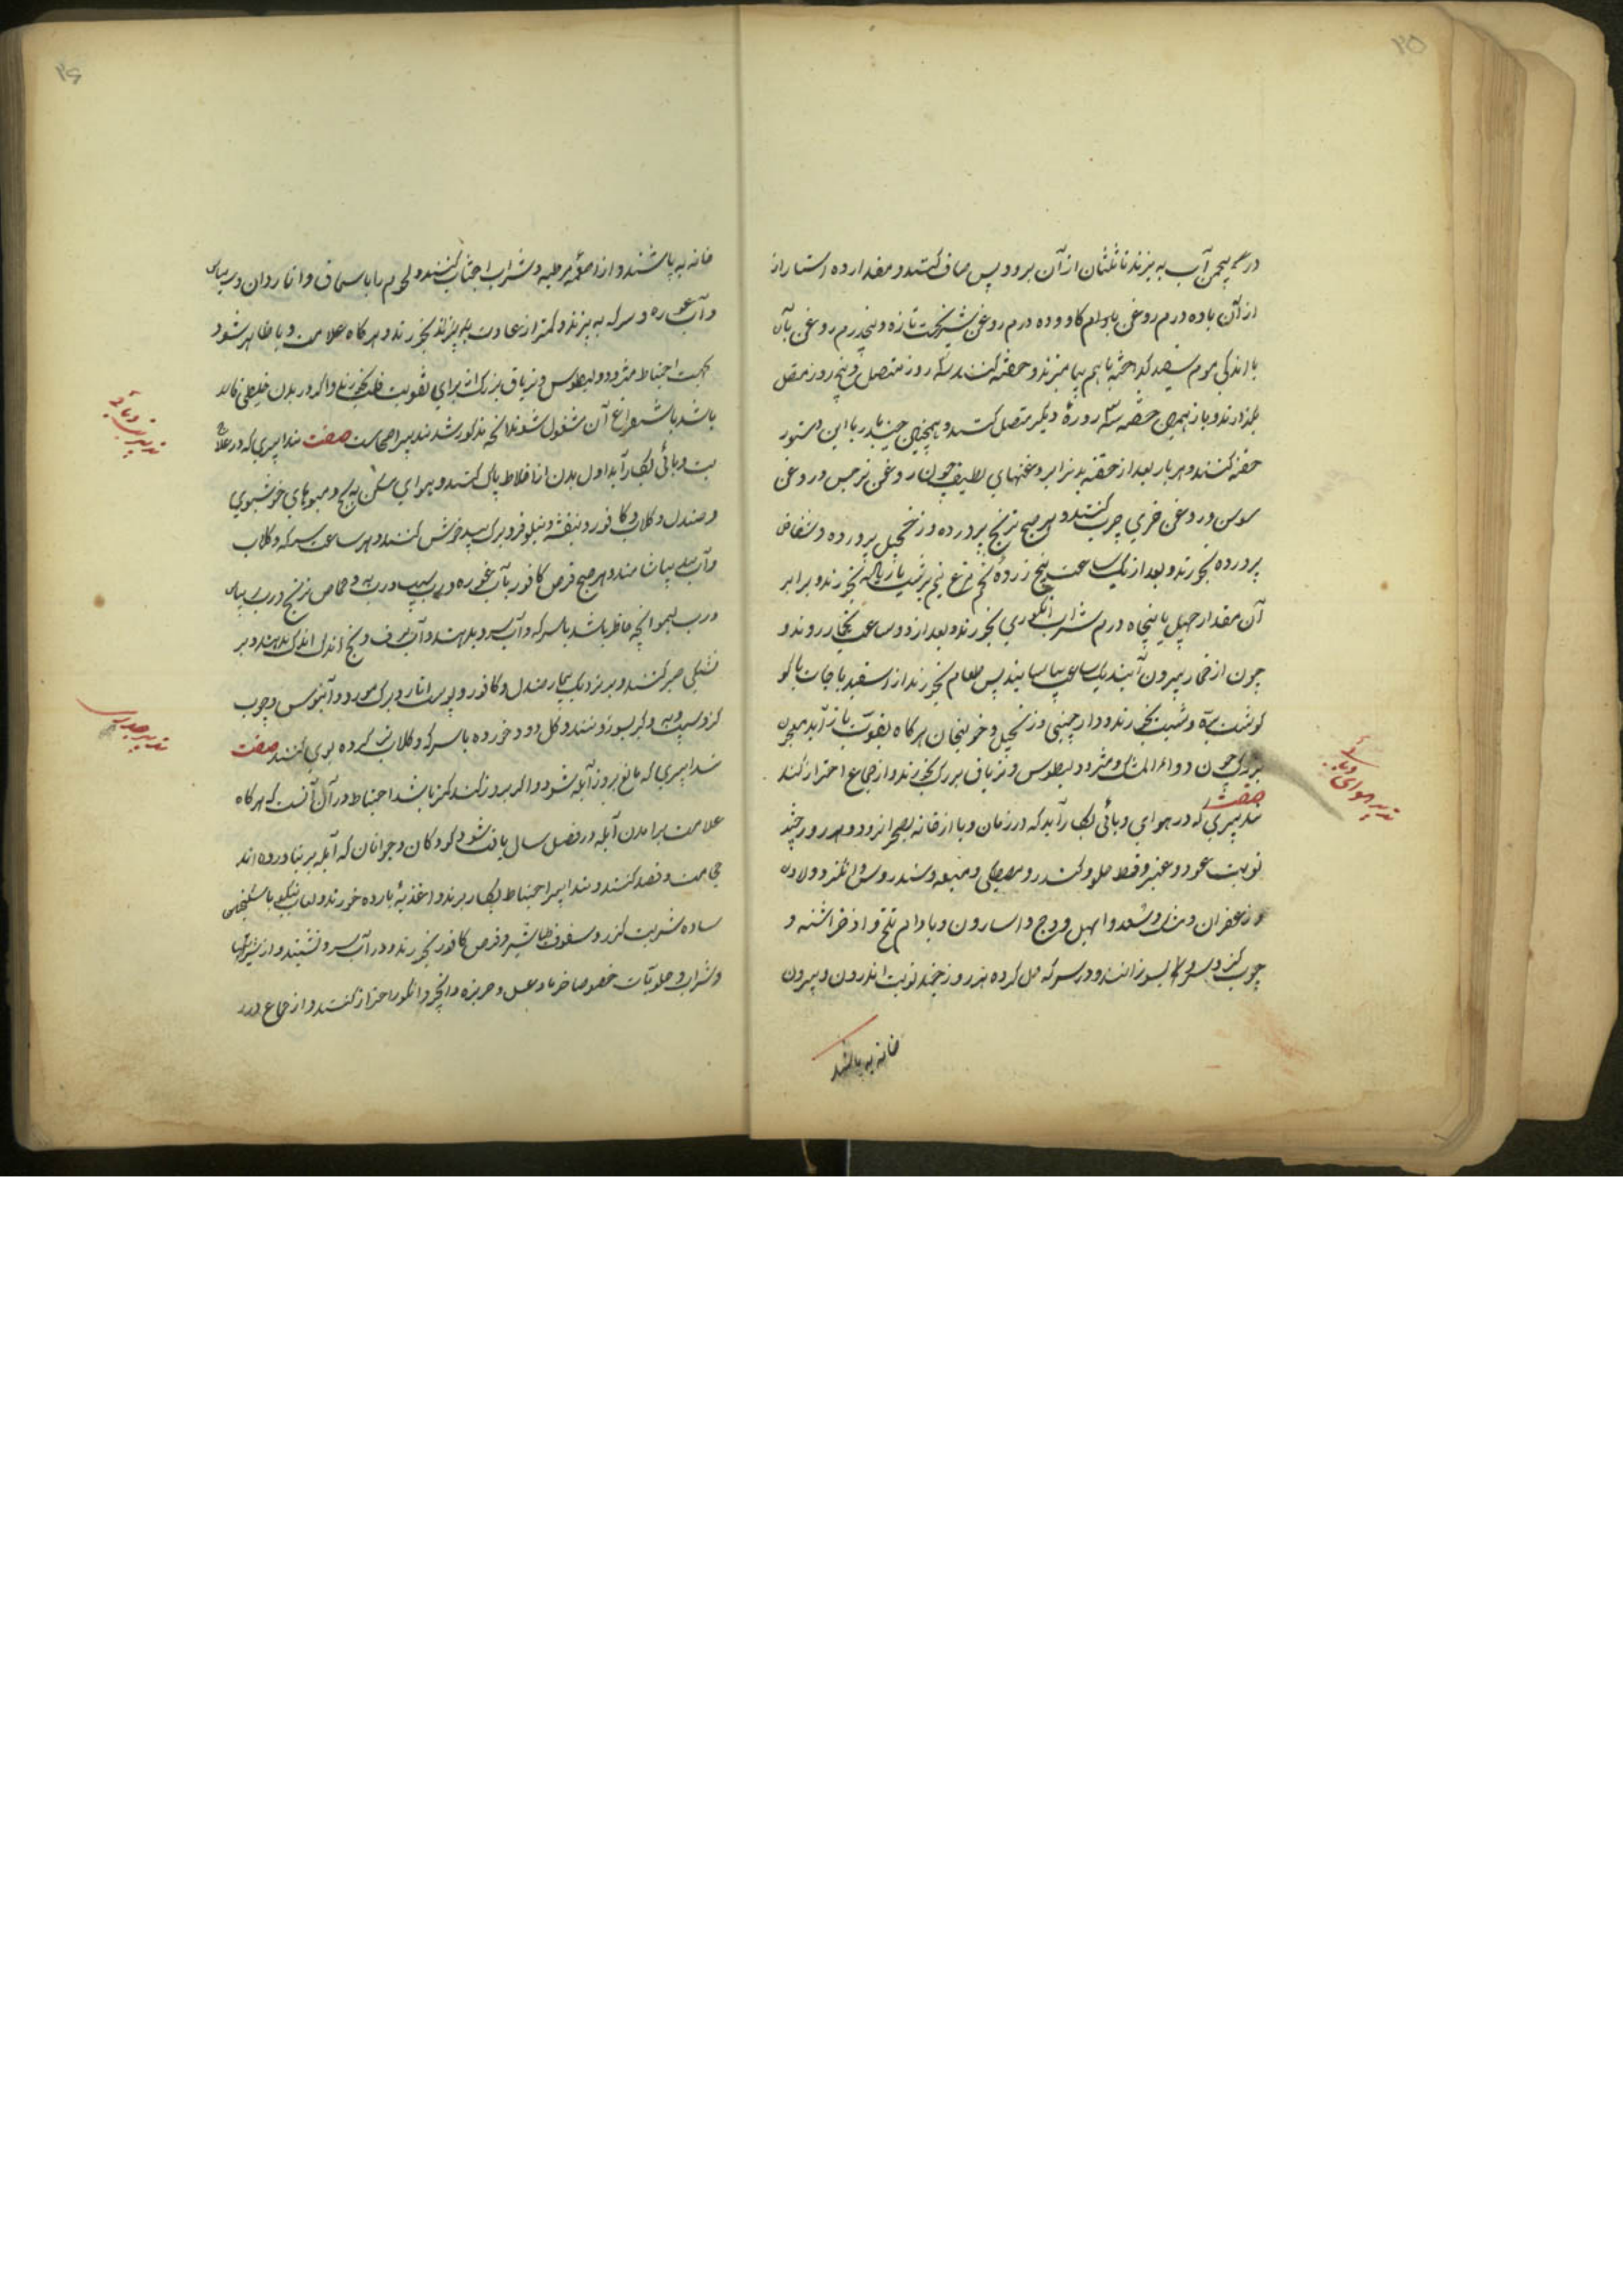 ۲۵
در پنجمن آب به پزند تا ثلثان از آن برود پس صاف کنند و مقدار ده استار از
از آن با ده درم روغن بادام کاو و ده درم روغن شیرپخت تازه و پنجدرم روغن بان
با اندکی موم سپید گداخته با هم بیامیزند و حقنه کنند سه روز متصل و پنج روز متصل
بگذارند و باز بهمین حقنه سه روزه دیگر متصل کنند و همچنین چند بار با این دستور
حقنه کنند و هر بار بعد از حقنه بدنرا بروغنهای لطیف چون روغن نرجس و روغن
سوسن و روغن خیری چرب کنند و هر صبح ترنج پرورده و زنجبیل پرورده و شقاقل
پرورده بخورند و بعد از یک ساعت پنج زرده تخم مرغ نیم برشت بخورند و برابر
آن مقدار چهل یا پنجاه درم شراب انگوری بخورند و بعد از دو ساعت بخار روند و
چون از بیرون آیند یک ساعت بیاسایند پس طعام بخورند از اسفید باجات با
گوشت بره و شبت بخورند و دارچینی و زنجبیل و خولنجان هر گاه بقوت باز آید معجون
بزرگ چون دواء المسک و مثرودیطوس و تریاق بزرگ بخورند و از جماع احتراز کنند
صفت
تدبیری که در هوای وبائی بکار آید که در زمان وبا از خانه بصحرا نرود و هر روز چند
تدبیر هوای وبائی
نوبت عود و عنبر و قسط حلو و کندر و مصطکی و میعه و سندروس و لادن
و زعفران و مشک و سعد و ابهل و وج و اسارون و بادام تلخ و اذخر اشنه و
چوب گز و سرو بسوزانند و در سرکه حل کرده هر روز چند نوبت اندرون و بیرون
خانه به پاشند
۲۶
خانه به پاشند و از اطعمه رطبه و شراب اجتناب کنند و لحوم را با سماق و انار دان و
و آب غوره و سرکه به پزند و کمتر از عادت بخورند و هر گاه علامت وبا ظاهر شود
بجهت احتیاط مثرودیطوس و تریاق بزرگ از برای تقویت قلب بخورند و اگر در بدن خلطی غالب
باشد باستفراغ آن مشغول شوند آنچه مذکور شد تدبیر اصحاست صفت تدابیری که در علاج
تدبیر تب وبائی
تب وبائی بکار آید اول بدن از اخلاط پاک کنند و هوای مسکن به یخ و میوهای خوشبوی
و صندل و گلاب و کافور و بنفشه و نیلوفر و برگ بید خوش کنند و هر ساعت سرکه و گلاب
و آب سیب بپاشانند و هر صبح قرص کافور بآب غوره و رب سیب و رب به و حماض ترنج و رب
و رب لیمو آنچه حاظر باشد با سرکه و آب سرد بدهند و آب برف و یخ اندک اندک بدهند و بر
تشنگی صبر کنند و بر نزدیک بیمار صندل و کافور و پوست انار و برگ مورد و آبنوس و چوب
گز و سیب و به و بسوزانند و گل دود خورده با سرکه و گلاب تر کرده بوی کنند صفت
تدبیر جدری
تدابیری که مانع بروز آبله شود و اگر بروز کند کمتر باشد احتیاط در آن آنست که هر گاه
علامت برآمدن آبله در فصل سال یافت شود کودکان و جوانان که آبله بر نیاورده اند
حجامت و فصد کنند و تدابیر احتیاط بکار برند و اغذیه بارده خورند و لعاب با سکنجبین
ساده شربت کنند و سفوف طباشیر و قرص کافور بخورند و در آب سرد نشینند و از شیرینیها
و شراب و حلویات خصوصا خرما و عسل و خربزه و انجیر و انگور احتراز کنند و از جماع و